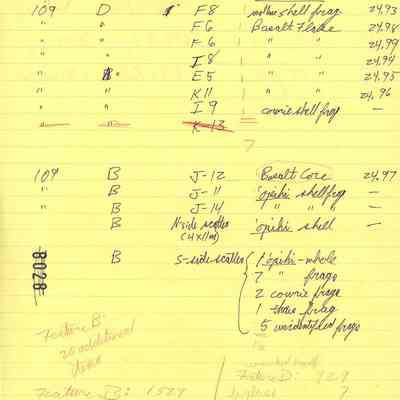 109 D 1 F8 shell frag 24.93
" " F6 Basalt Flake 24.98
" " F6 " " 24.99
" " I8 " " 24.94
" " E5 " " 24.95
" " K11 " " 24.96
" " I9 cowrie shell frag —
" " K-13
7
109 B J-12 Basalt Core 24.97
" B J-11 'opihi shell frag —
" B J-14 " " " —
B N side scatter 'opihi shell —
(4x11m)
8028 B S-side scatter 1 'opihi - whole
7 " frags
2 cowrie frags
1 frag
5 unidentified frags
Feature B:
20 additional
items
Feature D: 129
Feature B: 1529
7